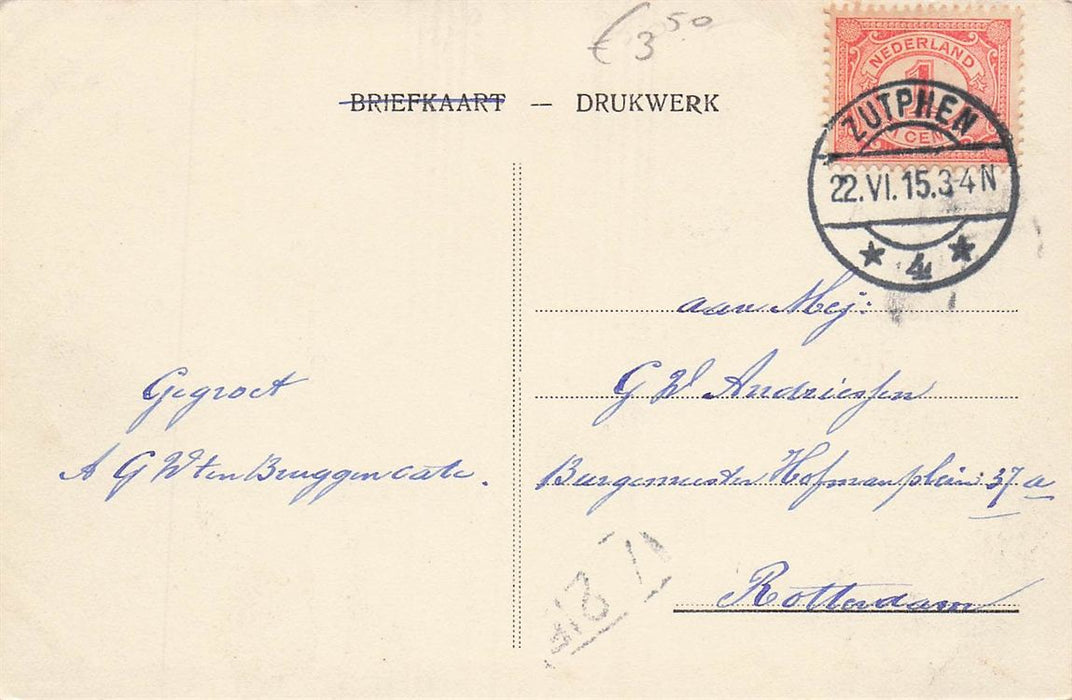 € 3 50
BRIEFKAART — DRUKWERK
NEDERLAND
1
CENT
ZUTPHEN
22.VI.15.3-4N
* 4 *
aan Mej:
G W Andriessen
Burgemeester Hofmanplein 37 a
Rotterdam
Gegroet
A G W ten Bruggencate.